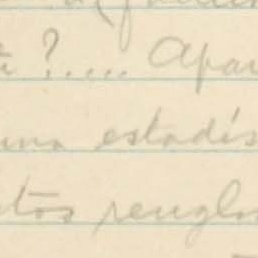 ? ..... Apar
una estadís
tos renglo